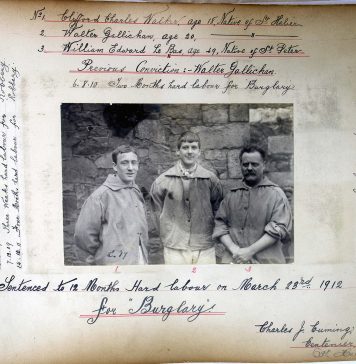 No 1. Clifford Charles Walker, age 18, Native of St Helier
2. Walter Gallichan, age 20, — " —
3. William Edward Le Bas age 49, Native of St Peter
Previous Conviction :- Walter Gallichan.
6.8.10 Two Months hard labour for Burglary
Three Weeks hard labour for
One Month hard labour for Robbery.
1 2 3
Sentenced to 12 Months Hard labour on March 23rd 1912
for "Burglary"
Charles J. Cuming,
Centenier